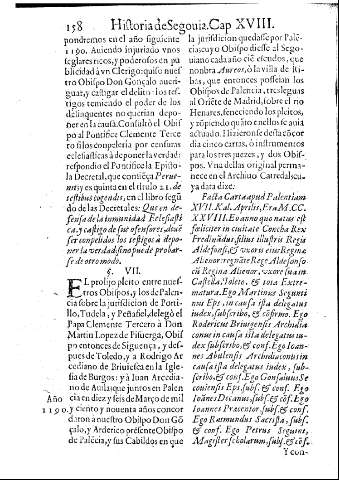 158 Historia de Segouia. Cap XVIII.
pondremos en el año siguiente
1190. Auiendo injuriado vnos
seglares ricos, y poderosos en pu-
blicidad à vn Clerigo: quiso nues-
tro Obispo Don Gonçalo aueri-
guar, y castigar el delito: los tes-
tigos temiendo el poder de los
delinquentes no querian depo-
ner en la causa. Consultó el Obis-
po al Pontifice Clemente Terce
ro si los compeleria por censuras
eclesiasticas à deponer la verdad:
respondio el Pontifice la Episto-
la Decretal, que contiẽça Peruе-
nit; y es quinta en el titulo 21. de
testibus cogendis, en el libro segũ-
do de las Decretales: Que en de-
fensa de la inmunidad Eclesiasti-
ca, y castigo de sus ofensores, deuẽ
ser compelidos los testigos à depo-
ner la verdad: sino pue de probar-
se de otro modo.
§. VII.
EL prolijo pleito entre nues-
tros Obispos, y los de Palen-
cia sobre la jurisdicion de Porti-
llo, Tudela, y Peñafiel, delegó el
Papa Clemente Tercero à Don
Martin Lopez de Fisuerga, Obis
po entonces de Siguença, y des-
pues de Toledo; y a Rodrigo Ar
cediano de Briuiesca en la Iglesia
de Burgos: y à Iuan Arcedia-
no de Auila: que juntos en Palen
cia en diez y seis de Março de mil
y ciento y nouenta años concor
daron à nuestro Obispo Don Gõ
çalo, y Arderico presente Obispo
de Palẽcia, y sus Cabildos en que
Año
1190.
la jurisdicion quedasse por Palẽ-
cia: cuyo Obispo diesse al Sego-
uiano cada año ciẽ escudos, que
nonbra Aureos, ò la villa de Iti-
bas, que entonces posseian los
Obispos de Palencia, tres leguas
al Oriẽte de Madrid, sobre el rio
Henares, feneciendo los pleitos,
y quitando quatro sueldos se auiã
actuado. Hizieronse desta cõcor
dia cinco cartas, ò instrumentos
para los tres juezes, y dos Obis-
pos. Vna dellas original perma-
nece en el Archiuo Catredal: cu-
ya data dize.
Facta Carta apud Palentiam
XVII. Kal. Aprilis, Era M.CC.
XXVIII. Eo anno que natus est
foeliciter in ciuitate Concha Rex
Fredinãdus, filius illustris Regis
Aldefonsi, & vxoris eius Regina
Alienor: regnãte Rege Aldefonso
cum Regina Alienor, vxore sua in
Castella, Toleto, & tota Extre-
matura. Ego Martinus Segunti
nus Eps, in causa ista delegatus
iudex, subscribo, & cõfirmo. Ego
Rodericus Briuigensis Archidia
conus in causa ista delegatus iu-
dex subscribo, & conf. Ego Ioan-
nes Abulensis Archidiaconus in
causa ista delegatus iudex, sub-
scribo, & conf. Ego Gonsaluus Se
couiensis Eps, subs. & cõf. Ego
Ioannes Decanus, subs. & cõf. Ego
Ioannes Praecentor, subs. & conf.
Ego Raimundus Sacrista, subs.
& conf. Ego Petrus Siguine,
Magister scholarum, subs. & cõf.
Y con-